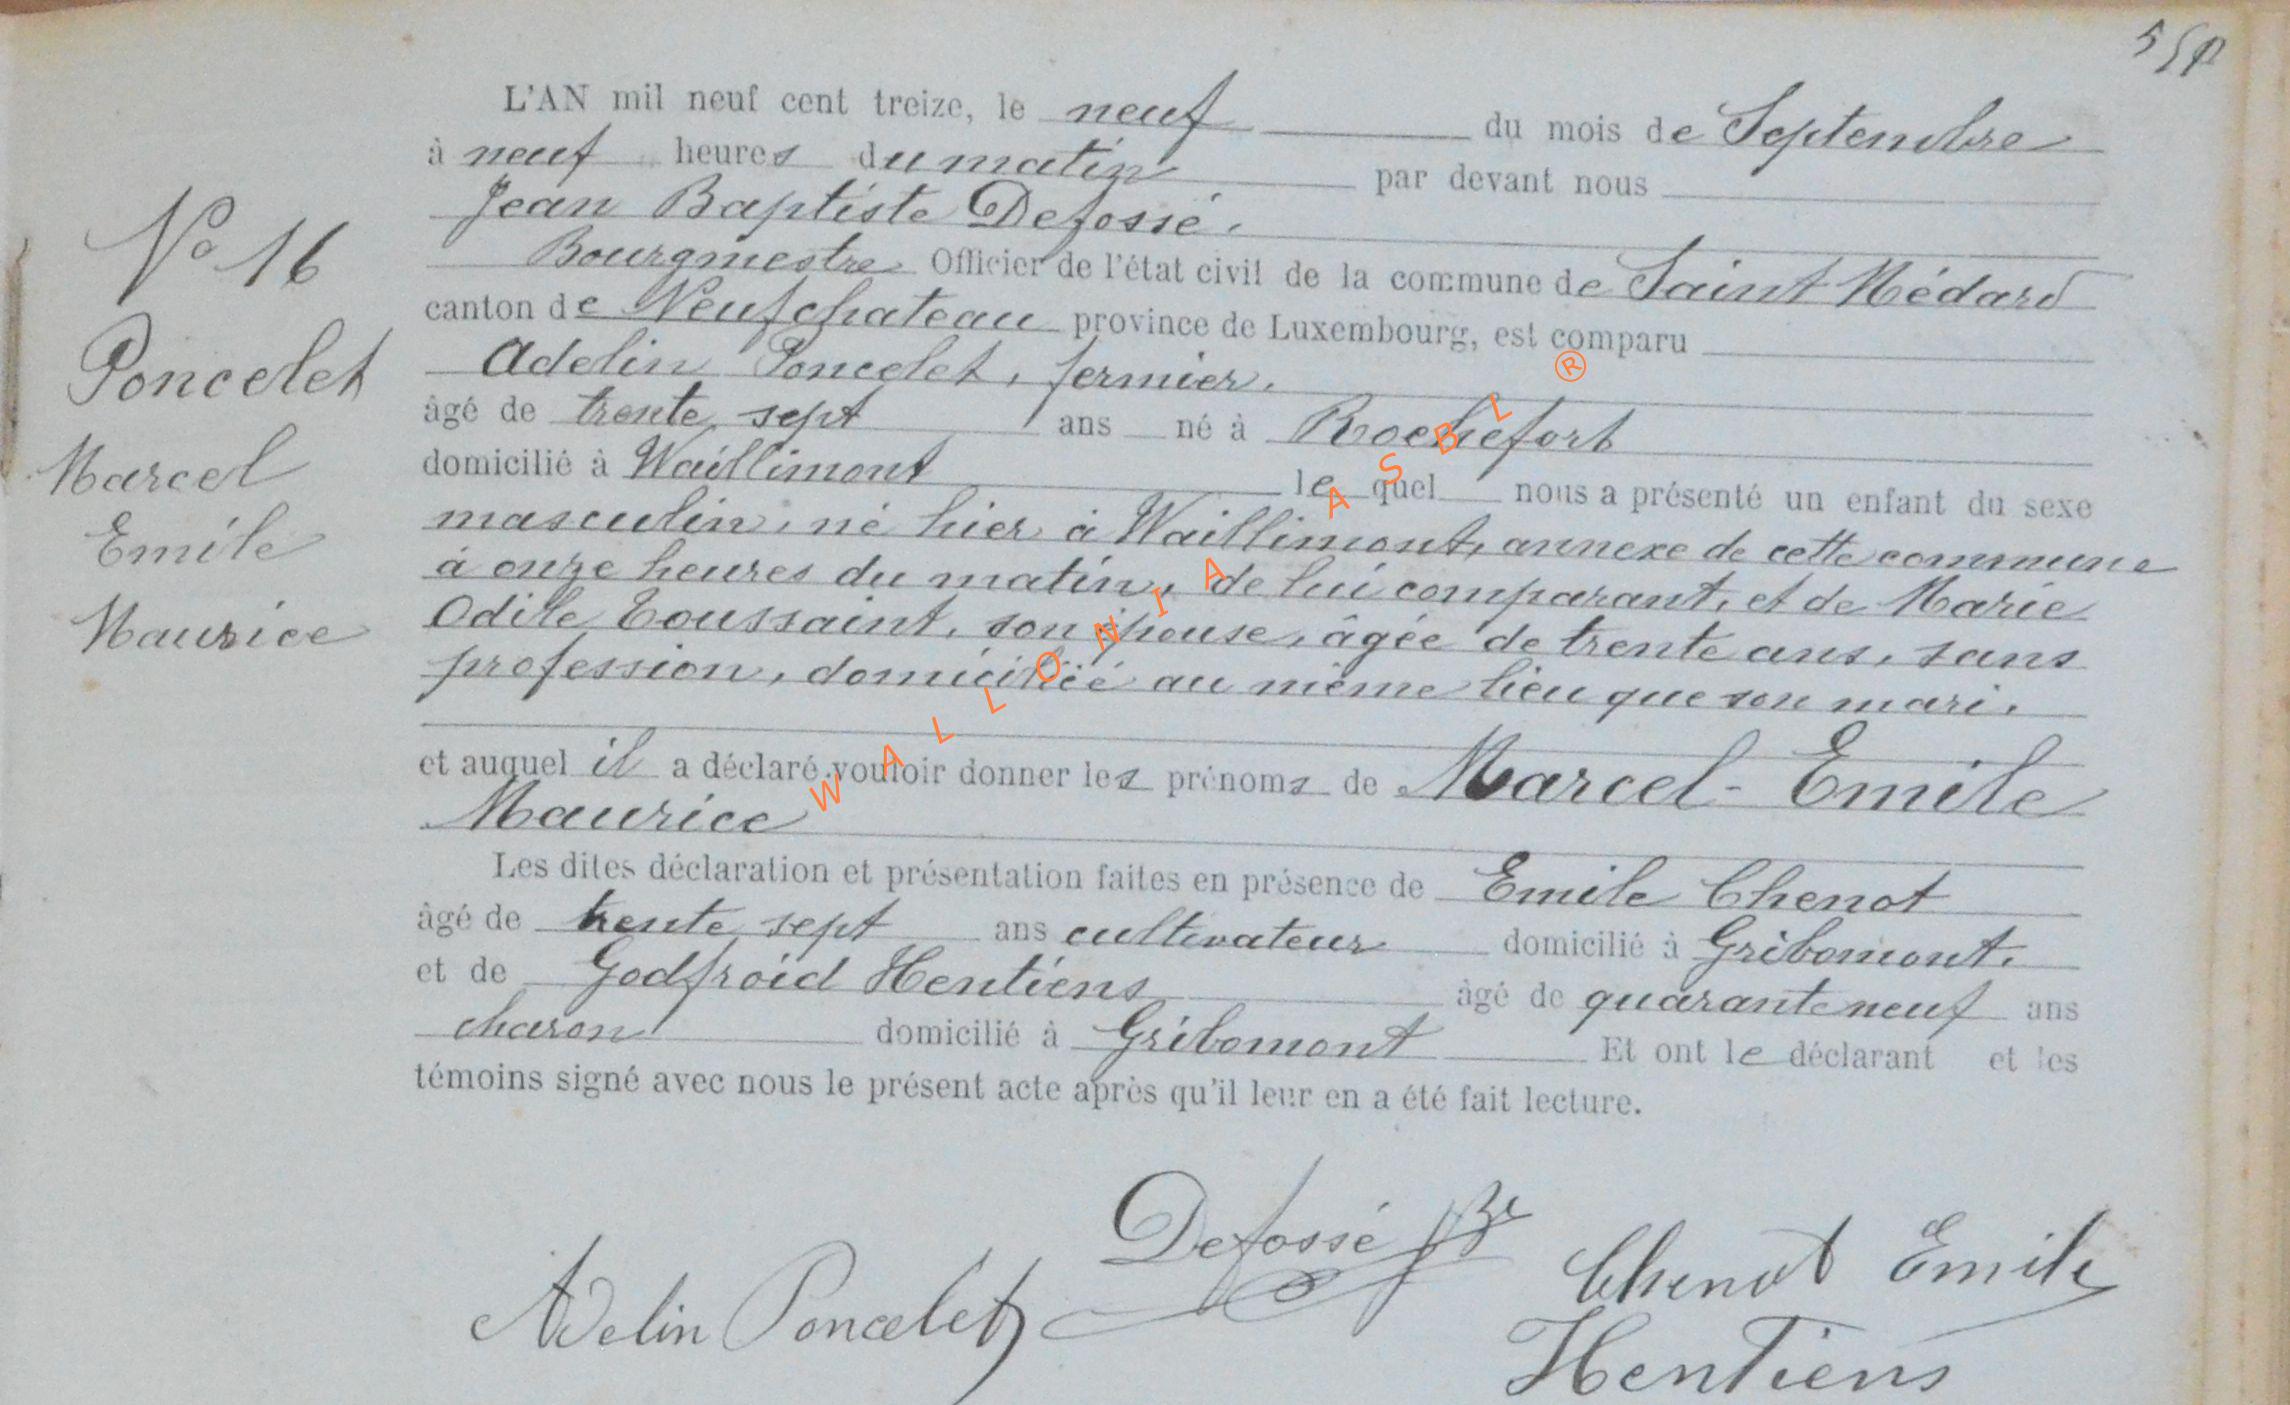 L'AN mil neuf cent treize, le neuf du mois de Septembre
à neuf heures du matin par devant nous
Jean Baptiste Defossé.
Bourgmestre Officier de l'état civil de la commune de Saint Médard
canton de Neufchateau province de Luxembourg, est comparu
Adelin Poncelet, fermier.
âgé de trente sept ans né à Rochefort
domicilié à Waillimont lequel nous a présenté un enfant du sexe
masculin, né hier à Waillimont, annexe de cette commune
à onze heures du matin, de lui comparant, et de Marie
Odile Toussaint, son épouse, âgée de trente ans, sans
profession, domiciliée au même lieu que son mari.
et auquel il a déclaré vouloir donner les prénoms de Marcel-Emile
Maurice
Les dites déclaration et présentation faites en présence de Emile Chenot
âgé de trente sept ans cultivateur domicilié à Gribomont.
et de Godfroid Hentiens âgé de quarante neuf ans
charon domicilié à Gribomont Et ont le déclarant et les
témoins signé avec nous le présent acte après qu'il leur en a été fait lecture.
No 16
Poncelet
Marcel
Emile
Maurice
Defossé
Adelin Poncelet
Chenot Emile
Hentiens
WALLONIA ASBL ®